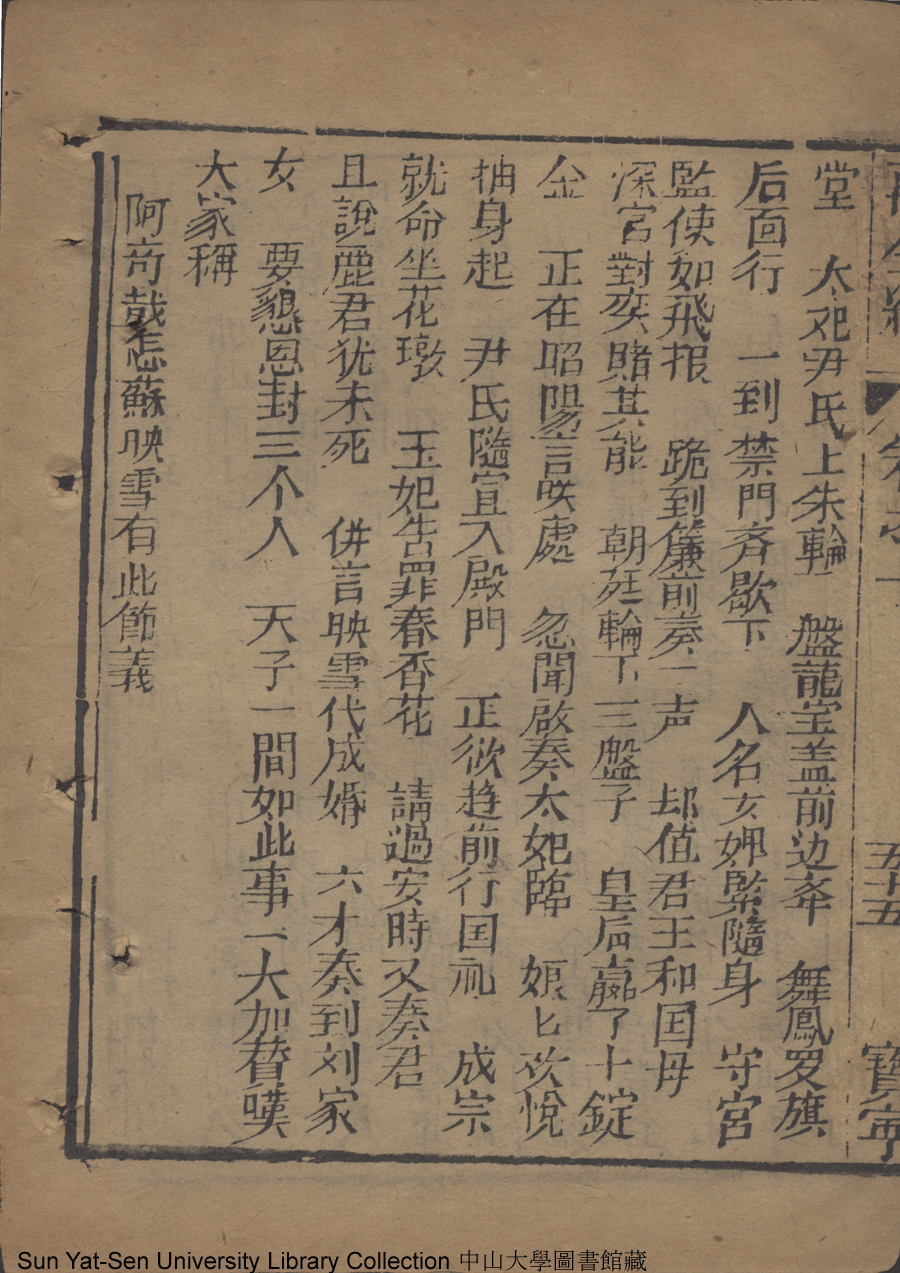 五十五 寶寧
堂 太妃尹氏上朱輪 盤龍宝盖前边奉 舞鳳罗旗
后面行 一到禁門斉歇下 人名女婢緊隨身 守宮
監使如飛报 跪到簾前奏一声 却值君王和囯母
深宮對奕賭其能 朝廷輪下三盤子 皇后贏了十錠
金 正在昭陽言咲處 忽聞啟奏太妃臨 娘匕欢悅
抽身起 尹氏隨宣入殿門 正欲趋前行囯礼 成宗
就命坐花墩 王妃告罪春香花 請過安時又奏君
且說鹿君犹未死 併言映雪代成婚 六才奏到刘家
女 要懇恩封三个人 天子一間如此事 一大加賛嘆
大家稱
阿奇哉怎蘇映雪有此節義
Sun Yat-Sen University Library Collection 中山大學圖書館藏